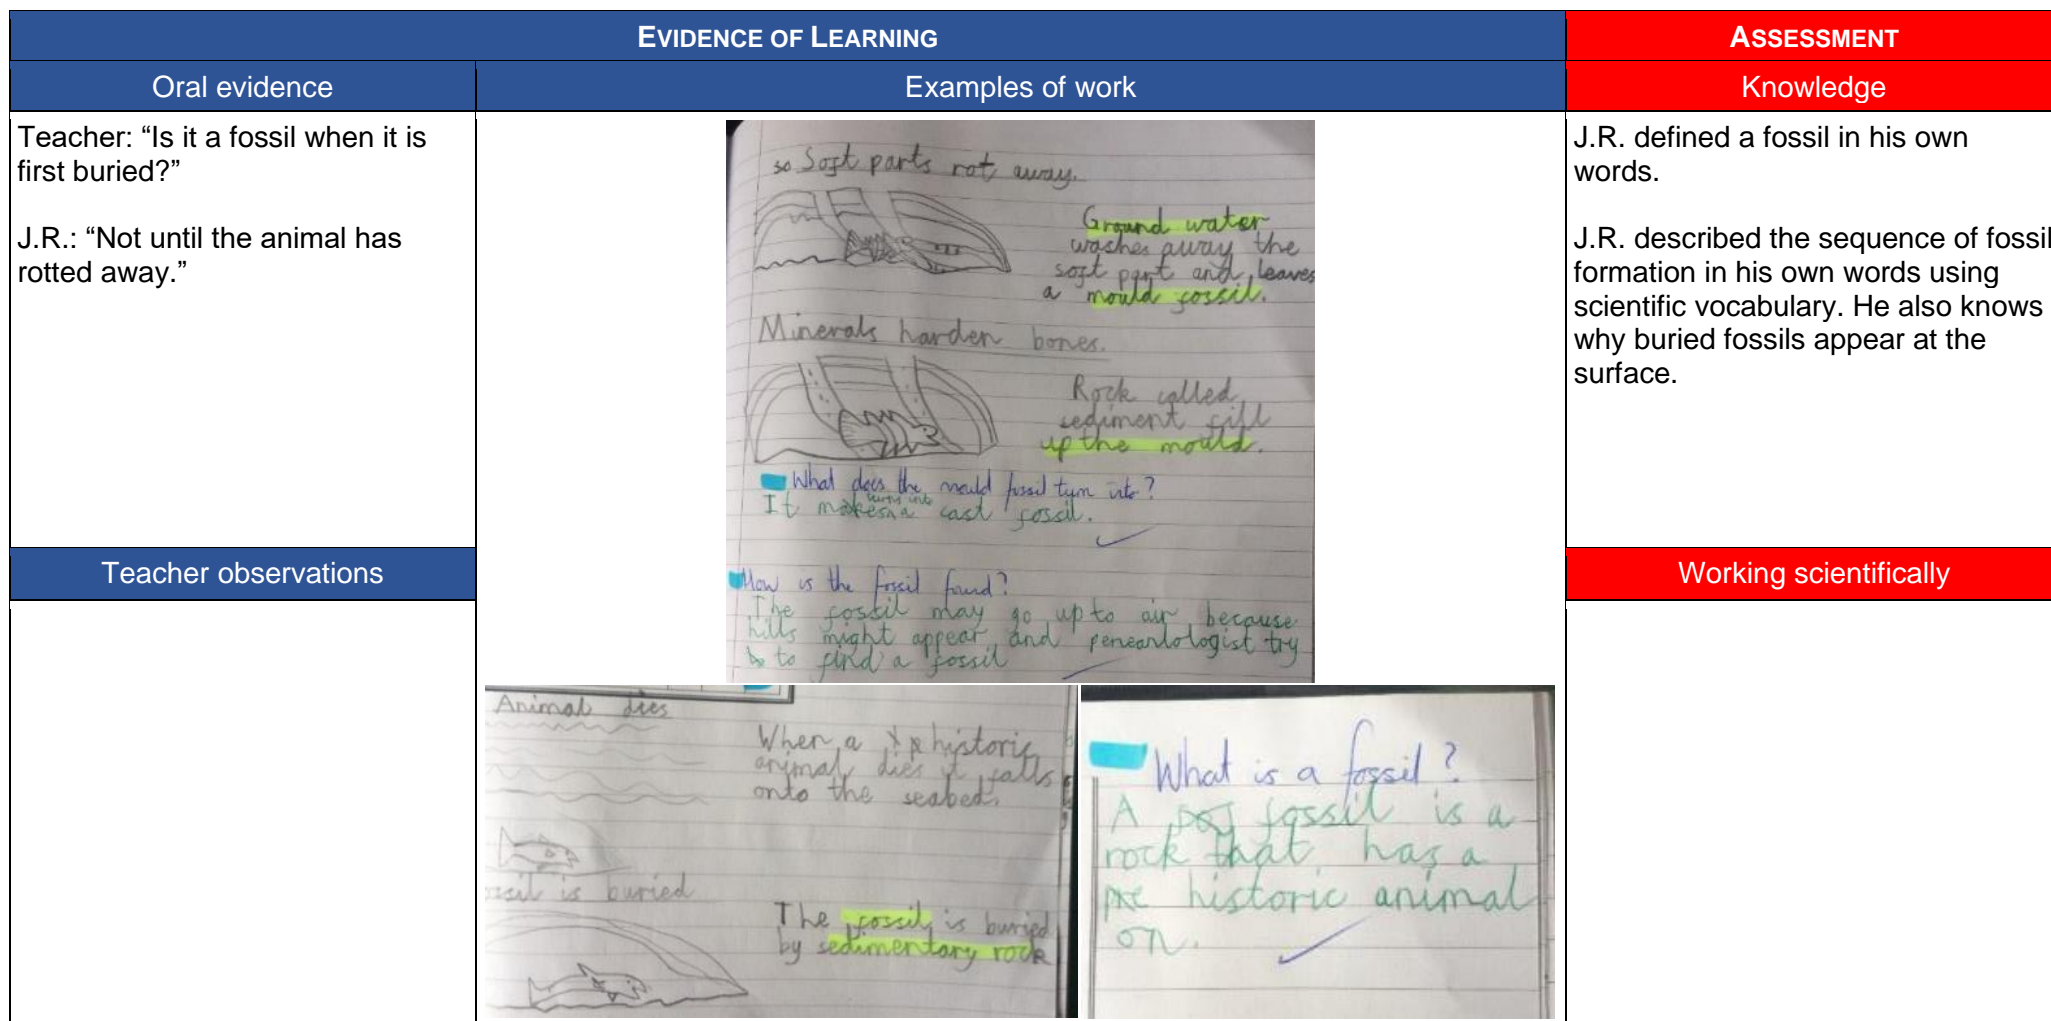 EVIDENCE OF LEARNING
ASSESSMENT
Oral evidence
Examples of work
Knowledge
Teacher: “Is it a fossil when it is
first buried?”
J.R.: “Not until the animal has
rotted away.”
so Soft parts rot away.
Ground water
washes away the
soft part and leaves
a mould fossil.
Minerals harden bones.
Rock called
sediment fill
up the mould.
What does the mould fossil turn into?
turns into
It makes a cast fossil.
How is the fossil found?
The fossil may go up to air because
hills might appear and peneantologist try
to find a fossil
Animal dies
When a historic
animal dies it falls
onto the seabed.
ossil is buried
The fossil is buried
by sedimentary rock
What is a fossil?
A fossil is a
rock that has a
pre historic animal
on.
J.R. defined a fossil in his own
words.
J.R. described the sequence of fossil
formation in his own words using
scientific vocabulary. He also knows
why buried fossils appear at the
surface.
Teacher observations
Working scientifically